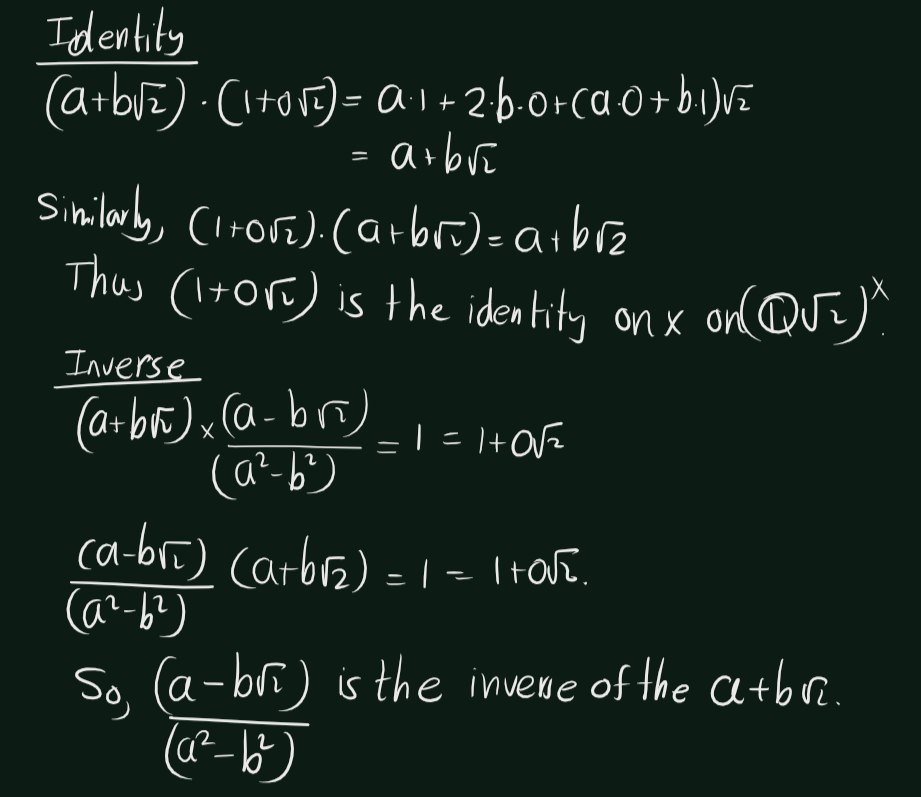 Identity
(a+b√2) · (1+0√2) = a·1 + 2·b·0 + (a·0 + b·1)√2
= a+b√2
Similarly, (1+0√2)·(a+b√2) = a+b√2
Thus (1+0√2) is the identity on x on (ℚ√2)^x.
Inverse
(a+b√2) × (a-b√2)/(a²-b²) = 1 = 1+0√2
(a-b√2)/(a²-b²) (a+b√2) = 1 = 1+0√2.
So, (a-b√2)/(a²-b²) is the inverse of the a+b√2.